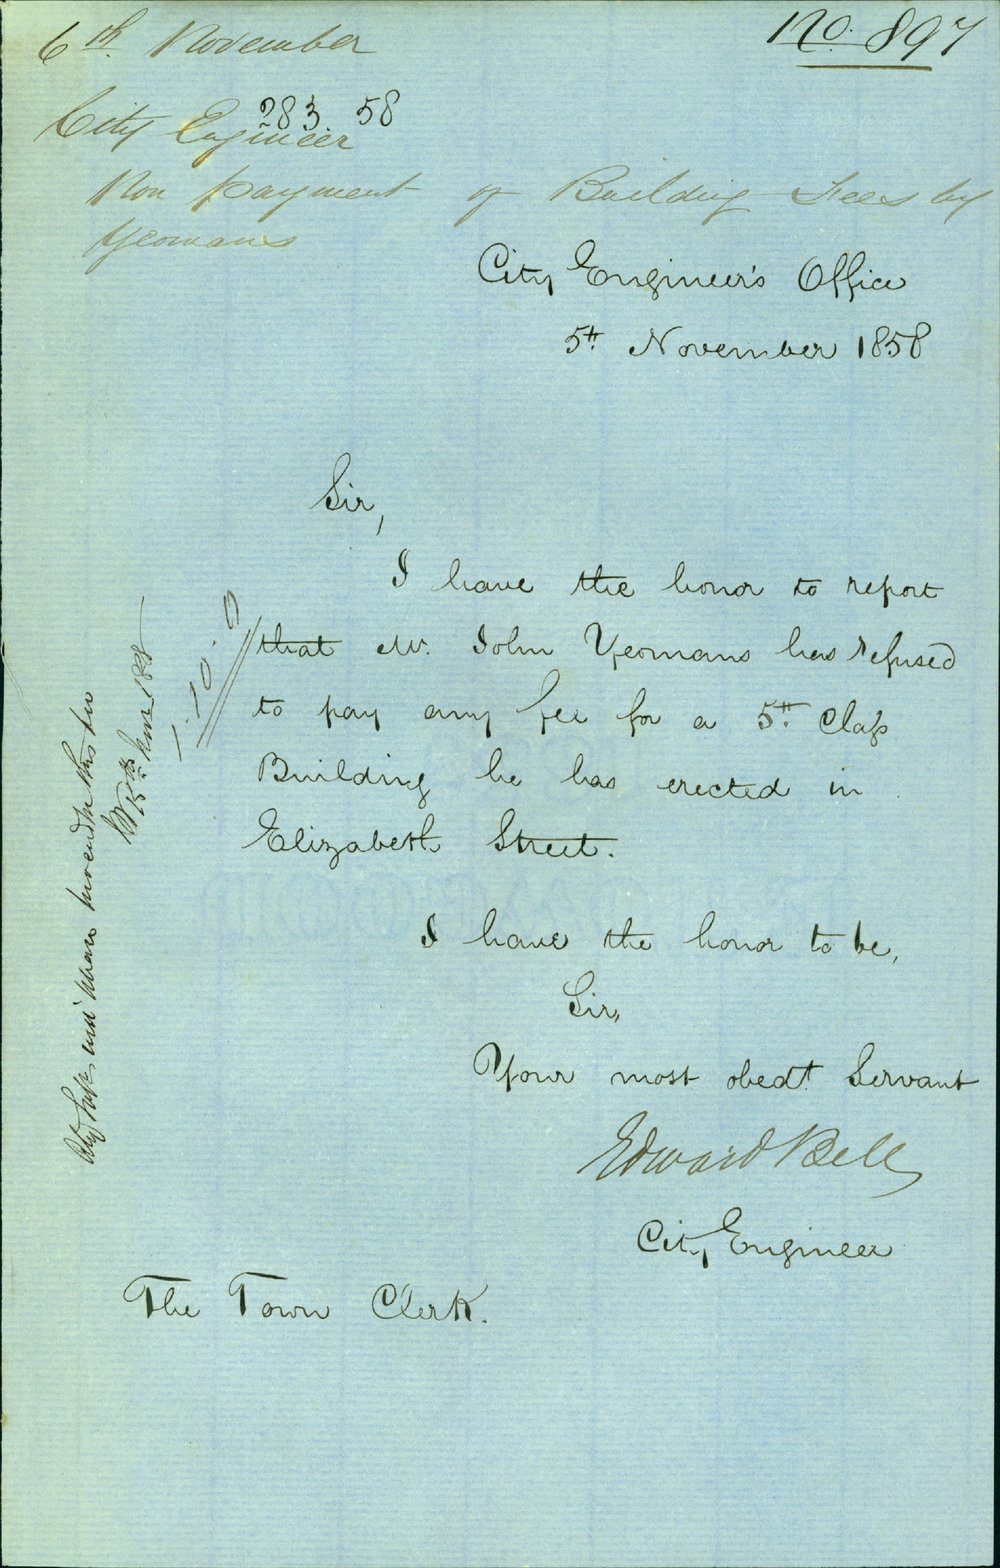 6th November
No. 897
283 58
City Engineer
Non payment of Building Fees by
Yeomans
City Engineer's Office
5th November 1858
Sir,
I have the honor to report
that Mr. John Yeomans has refused
to pay any fee for a 5th Class
Building he has erected in
Elizabeth Street.
I have the honor to be,
Sir,
Your most obedt Servant
Edward Bell
City Engineer
The Town Clerk.
1.10.0